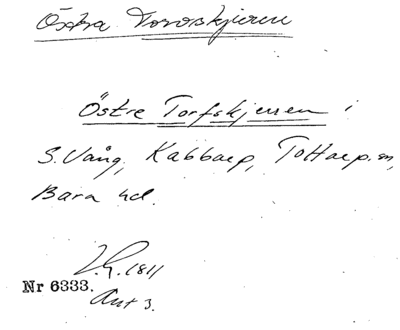 Östra Torvskjeren
Östre Torfskjerren i
S. Vång, Kabbarp, Tottarp sn,
Bara hd.
L.G. 1811
Nr 6333.
Akt 3.